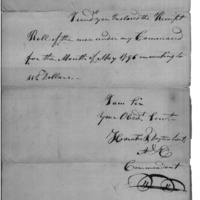 I send you Enclosed the Receipt
Roll of the men under my Command
for the Month of May 1795 amounting to
Dollars.
I am Sir
Your Obedt. Servt.
Commandant